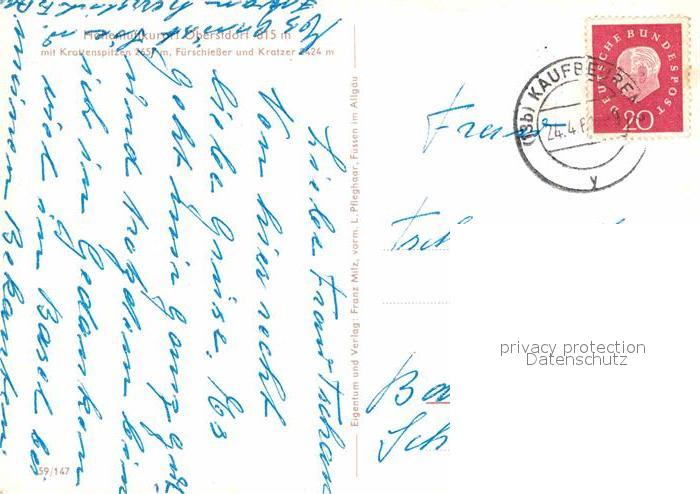 Höhenluftkurort Oberstdorf 815 m
mit Krottenspitzen 2657 m, Fürschießer und Kratzer 2424 m
Liebe Frau
Von hier recht
liebe Grüsse. Es
geht mir ganz gut
und trotzdem bin
ich in Gedanken
viel in Basel bei
meinen Bekannten.
Eigentum und Verlag: Franz Milz, vorm. L. Pfleghaar, Füssen im Allgäu
59/147
DEUTSCHE BUNDESPOST
20
(13b) KAUFBEUREN
24.4.6
y
Frau
Ba
Sch
privacy protection
Datenschutz